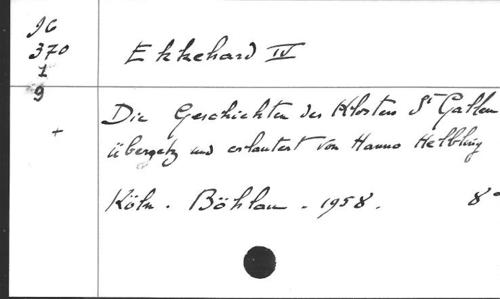 96
370
1
9
+
Ekkehard IV
Die Geschichten des Klosters St Gallen
übersetz und erlautert von Hanno Helbling
Köln. Böhlau. 1958. 8°